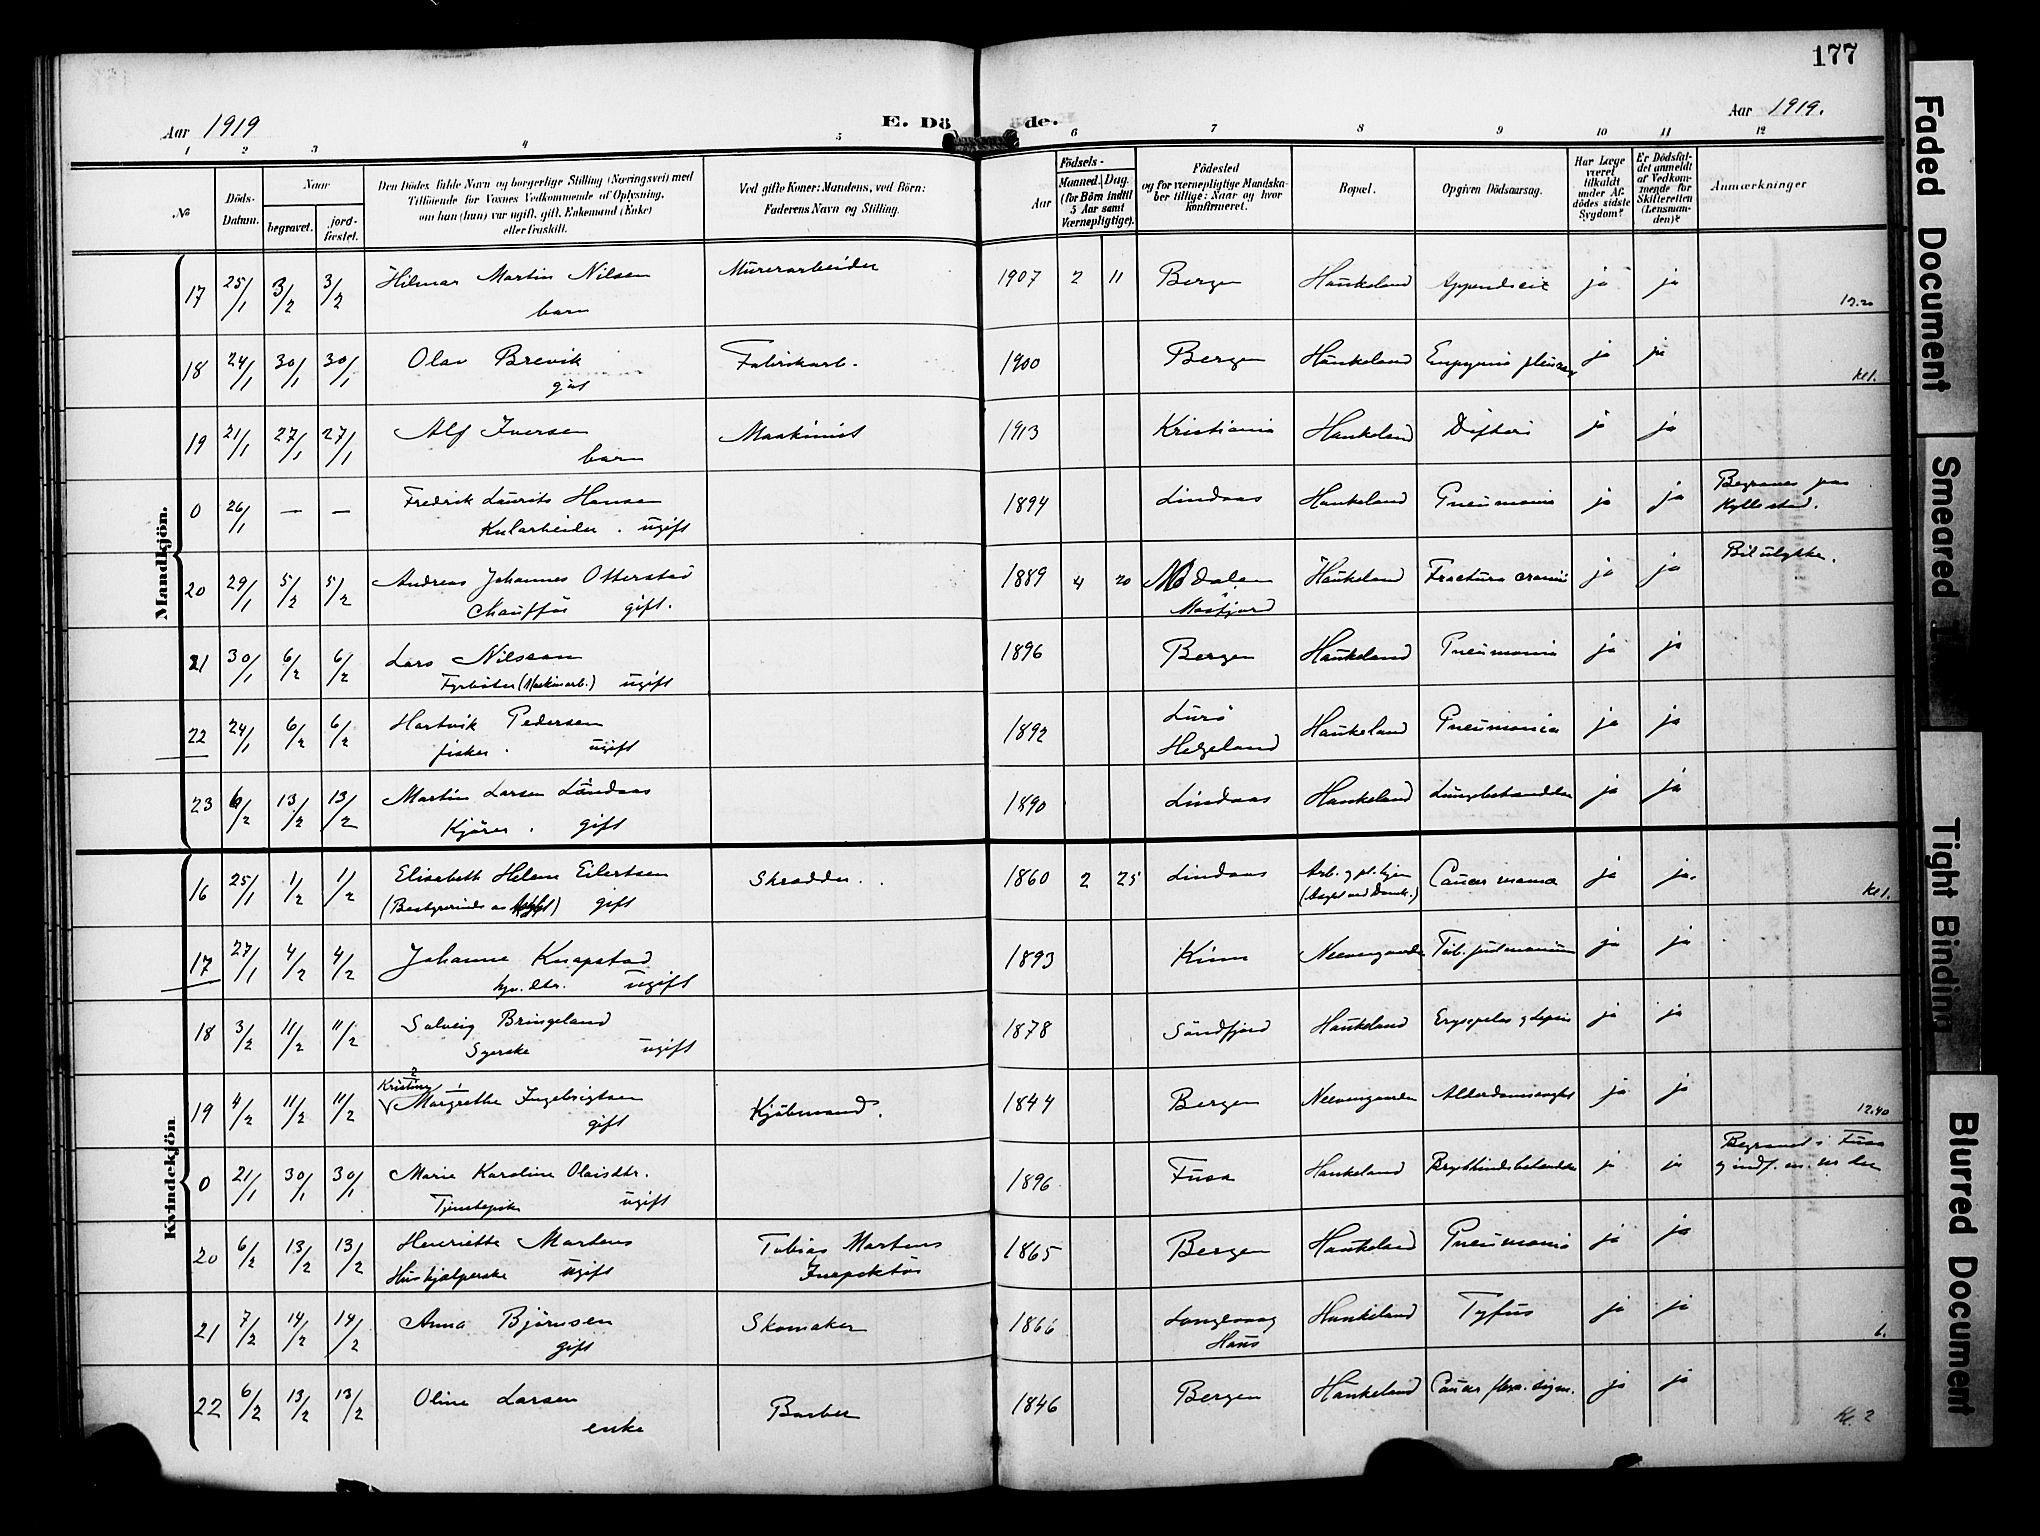 177
Aar 1919
E. Döde.
Aar 1919.
1 2 3 4 5 6 7 8 9 10 11 12
№
Döds-Datum.
Naar
begravet.
jord-fæstet.
Den Dödes fulde Navn og borgerlige Stilling (Næringsvei) med
Tilföiende for Voxnes Vedkommende af Oplysning,
om han (hun) var ugift, gift, Enkemand (Enke)
eller fraskilt.
Ved gifte Koner: Mandens, ved Börn:
Faderens Navn og Stilling.
Födsels-
Aar
Maaned. Dag.
(for Börn indtil
5 Aar samt
Værnepligtige).
Födested
og for værnepligtige Mandska-
ber tillige: Naar og hvor
konfirmeret.
Bopæl.
Opgiven Dödsaarsag.
Har Læge
været
tilkaldt
under Af-
dödes sidste
Sygdom?
Er Dödsfal-
det anmeldt
af Vedkom-
mende for
Skifteretten
(Lensman-
den)?
Anmærkninger
Mandkjön.
17 25/1 3/2 3/2 Hilmar Martin Nilsen Murerarbeider 1907 2 11 Bergen Haukeland Appendicit ja ja
barn
18 24/1 30/1 30/1 Olav Brevik Fabrikarb. 1900 Bergen Haukeland Empyemis pleurae ja ja kl 1.
gut
19 21/1 27/1 27/1 Alf Iversen Maskinist 1913 Kristiania Haukeland Difteri ja ja
barn
0 26/1 — — Fredrik Laurits Hansen 1894 Lindaas Haukeland Pneumonia ja ja Begraves paa
Kularbeider. ugift Hyllestad.
20 29/1 5/2 5/2 Andreas Johannes Otterstad 1889 4 20 Modalen Haukeland Fractura cranii ja ja Bilulykke.
Chauffør gift. Masfjord
21 30/1 6/2 6/2 Lars Nilssen 1896 Bergen Haukeland Pneumonia ja ja
Fyrbøter (Maskinarb.) ugift
22 24/1 6/2 6/2 Hartvik Pedersen 1892 Lurø Haukeland Pneumonia ja ja
fisker. ugift Helgeland
23 6/2 13/2 13/2 Martin Larsen Lindaas 1890 Lindaas Haukeland Lungebetændelse ja ja
Kjører. gift
Kvindekjön
16 25/1 1/2 1/2 Elisabeth Helene Eilertsen Skrædder. 1860 2 25 Lindaas Cancer mama ja ja. kl 1.
gift
17 27/1 4/2 4/2 Johanne Knapstad 1893 Kinn Neevengaarden Tub. pulmonum ja ja
ugift
18 3/2 11/2 11/2 Solveig Bringeland 1878 Søndfjord Haukeland Erysipelas og Sepsis ja ja
Syerske ugift
19 4/2 11/2 11/2 Kristine Margrethe Ingebrigtsen Kjøbmand. 1844 Bergen Neevengaarden Alderdomssvaghet ja ja 12.40
gift
0 21/1 30/1 30/1 Marie Karoline Olaisdtr. 1896 Fusa Haukeland Brysthindebetændelse ja ja Begravet i Fusa
Tjenestepike ugift
20 6/2 13/2 13/2 Henriette Martens Tobias Martens 1865 Bergen Haukeland Pneumonia ja ja
Hushjælperske ugift Inspektør
21 7/2 14/2 14/2 Anna Bjørnsen Skomaker 1866 Haukeland Tyfus ja ja 6.
gift Haus
22 6/2 13/2 13/2 Oline Larsen Barber 1846 Bergen Haukeland Cancer flex. sigm. ja ja Kl. 2
enke
Faded Document
Smeared
Tight Binding
Blurred Document